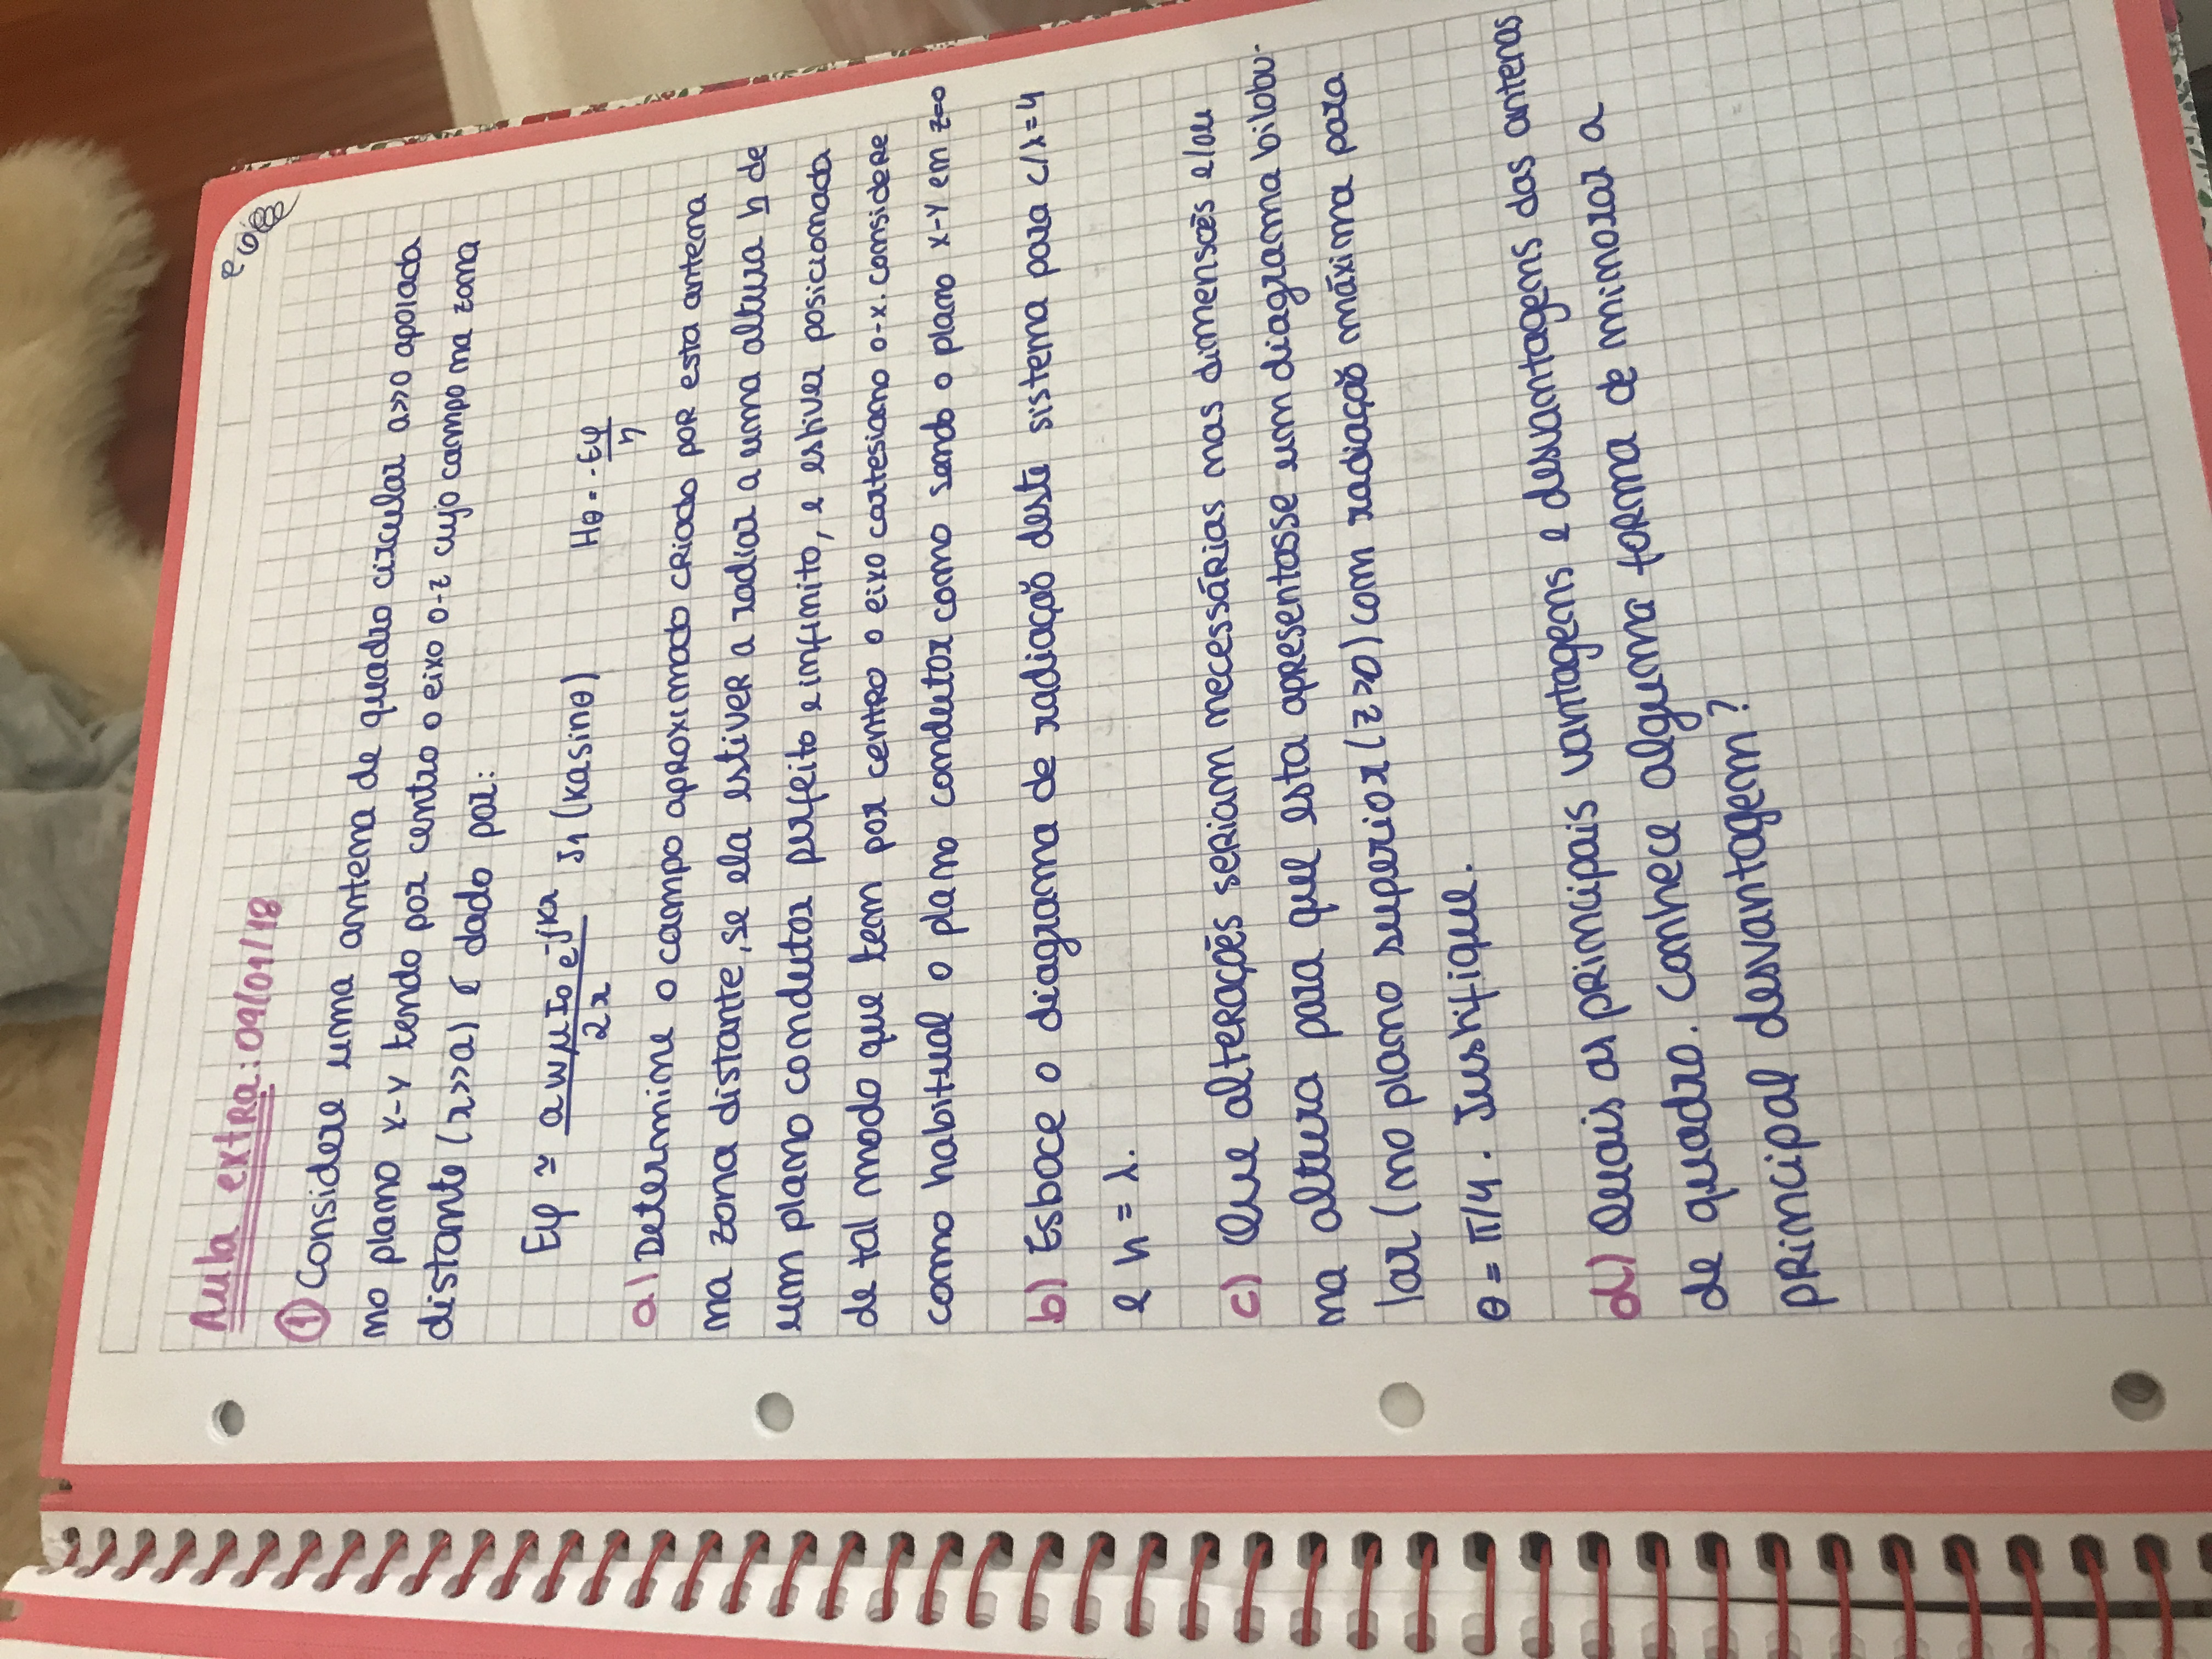 Aula extra: 09/01/18
① Considere uma antena de quadro circular a>>0 apoiada
no plano x-y tendo por centro o eixo o-z cujo campo na zona
distante (r>>a) é dado por:
Eφ ≃ a w μ I₀ e^-jkr / 2r J₁ (ka sinθ) Hθ = -Eφ / η
a) Determine o campo aproximado criado por esta antena
na zona distante, se ela estiver a radiar a uma altura h de
um plano condutor perfeito e infinito, e estiver posicionada
de tal modo que tem por centro o eixo cartesiano o-x. considere
como habitual o plano condutor como sendo o plano x-y em z=0
b) Esboce o diagrama de radiação deste sistema para c/λ=4
e h = λ.
c) Que alterações seriam necessárias nas dimensões e/ou
na altura para que esta apresentasse um diagrama bilobu-
lar (no plano superior (z>0) com radiação máxima para
θ = π/4. Justifique.
d) Quais as principais vantagens e desvantagens das antenas
de quadro. Conhece alguma forma de minorar a
principal desvantagem?